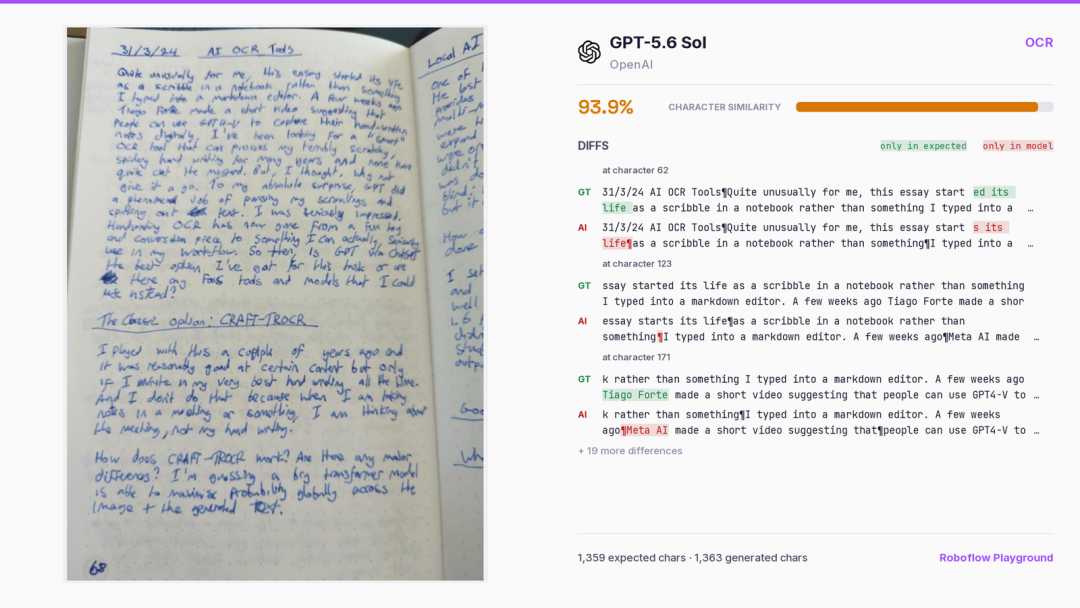 31/3/24 AI OCR Tools
Quite unusually for me, this essay started its life
as a scribble in a notebook rather than something
I typed into a markdown editor. A few weeks ago
Tiago Forte made a short video suggesting that
People can use GPT4-V to capture their hand-written
notes digitally. I've been looking for a "smart"
OCR tool that can process my terribly scratchy,
spidery hand writing for many years and none have
quite cut the mustard. But, I thought, why not
give it a go. To my absolute surprise, GPT did
a phenomenal job of parsing my scrawlings and
spitting out text. I was seriously impressed.
Handwriting OCR has now gone from a fun toy
and conversation piece to something I can actually, seriously
use in my workflow. So then, is GPT via ChatGPT
the best option I've got for this task or are
there any FOSS tools and models that I could
use instead?
The Classic option: CRAFT-TROCR
I played with this a couple of years ago and
it was reasonably good at certain content but only
if I write in my very best hand writing all the time.
And I don't do that because when I am taking
notes in a meeting or something, I am thinking about
the meeting, not my hand writing.
How does CRAFT-TROCR work? Are there any major
differences? I'm guessing a big transformer model
is able to maximise Probability globally across the
image + the generated text.
68
Local AI
one of
the last
multi-m
were
expand
blind.
but it
How
done
I set
and
well
outp
GPT-5.6 Sol
OpenAI
OCR
93.9% CHARACTER SIMILARITY
DIFFS only in expected only in model
at character 62
GT 31/3/24 AI OCR Tools¶Quite unusually for me, this essay start ed its
life as a scribble in a notebook rather than something I typed into a …
AI 31/3/24 AI OCR Tools¶Quite unusually for me, this essay start s its
life¶as a scribble in a notebook rather than something¶I typed into a …
at character 123
GT ssay started its life as a scribble in a notebook rather than something
I typed into a markdown editor. A few weeks ago Tiago Forte made a shor
AI essay starts its life¶as a scribble in a notebook rather than
something¶I typed into a markdown editor. A few weeks ago¶Meta AI made …
at character 171
GT k rather than something I typed into a markdown editor. A few weeks ago
Tiago Forte made a short video suggesting that people can use GPT4-V to …
AI k rather than something¶I typed into a markdown editor. A few weeks
ago¶Meta AI made a short video suggesting that¶people can use GPT4-V to …
+ 19 more differences
1,359 expected chars · 1,363 generated chars
Roboflow Playground